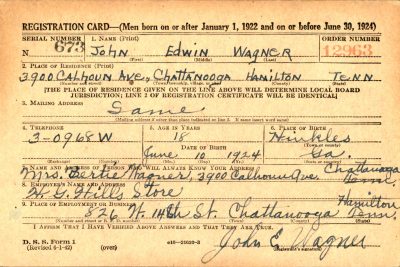 REGISTRATION CARD—(Men born on or after January 1, 1922 and on or before June 30, 1924)
SERIAL NUMBER 1. NAME (Print) ORDER NUMBER
673 JOHN EDWIN WAGNER 12963
(First) (Middle) (Last)
2. PLACE OF RESIDENCE (Print)
3900 CALHOUN AVE, CHATTANOOGA HAMILTON TENN
[THE PLACE OF RESIDENCE GIVEN ON THE LINE ABOVE WILL DETERMINE LOCAL BOARD
JURISDICTION; LINE 2 OF REGISTRATION CERTIFICATE WILL BE IDENTICAL]
3. MAILING ADDRESS
Same
[Mailing address if other than place indicated on line 2. If same insert word same]
4. TELEPHONE 5. AGE IN YEARS 6. PLACE OF BIRTH
3-0968W 18 Hinkles
DATE OF BIRTH (Town or county)
June 10 1924 Ga.
(Mo.) (Day) (Yr.) (State or country)
7. NAME AND ADDRESS OF PERSON WHO WILL ALWAYS KNOW YOUR ADDRESS Chattanooga
Mrs. Bertie Wagner, 3900 Calhoun Ave. Tenn.
8. EMPLOYER'S NAME AND ADDRESS
H. G. Hills Store Hamilton
9. PLACE OF EMPLOYMENT OR BUSINESS
826 W. 14th St. Chattanooga Tenn.
I AFFIRM THAT I HAVE VERIFIED ABOVE ANSWERS AND THAT THEY ARE TRUE.
D. S. S. Form 1
(Revised 6-1-42) (over) John E. Wagner
(Registrant's signature)